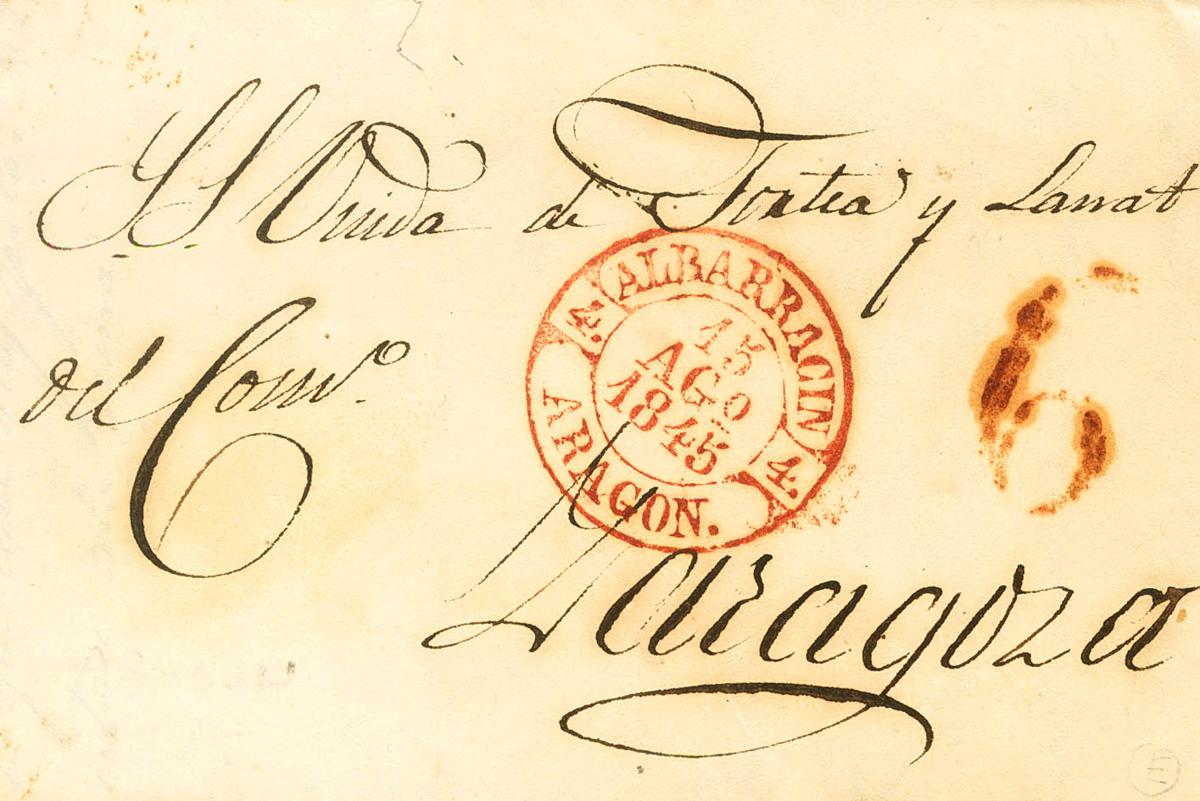 S.S. Viuda de Fortea y Lanat
ALBARRACIN
4.
15
AGO
1845
4.
ARAGON.
6
del Comº.
Zaragoza
E